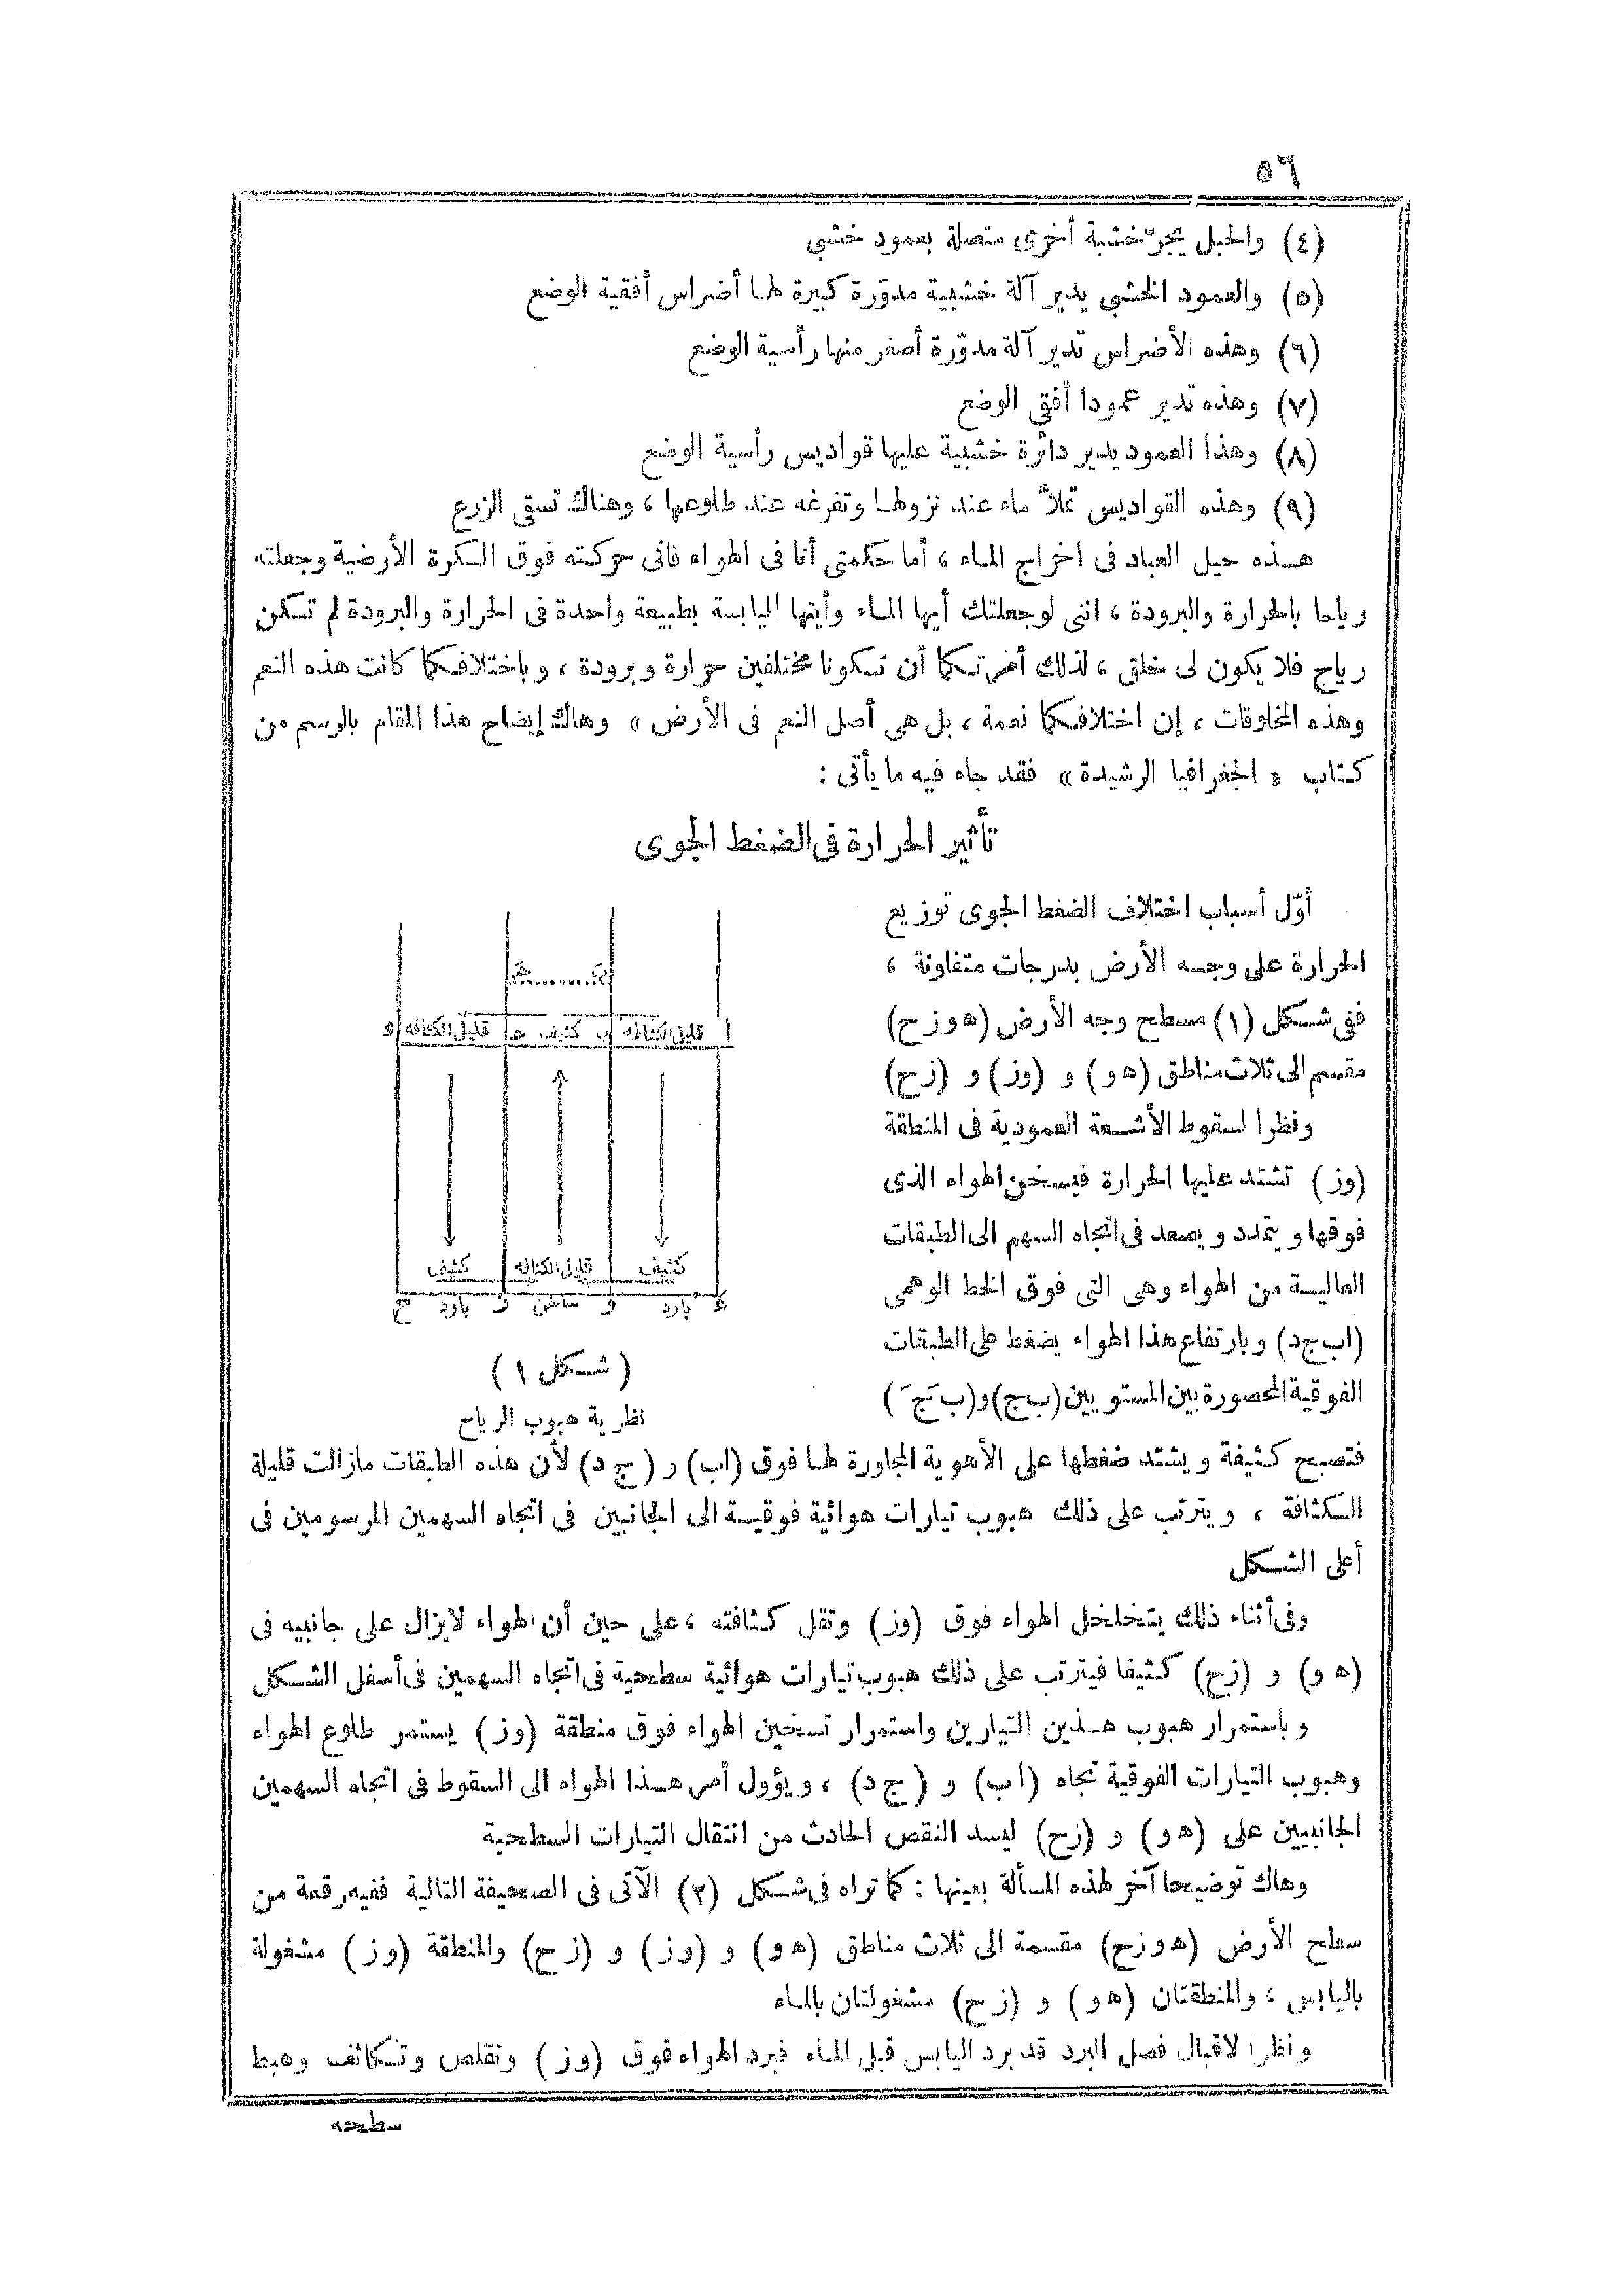 ٥٦
(٤) والحبل يجرّ خشبة أخرى متصلة بعمود خشبي
(٥) والعمود الخشبى يدير آلة خشبية مدوّرة كبيرة لها أضراس أفقية الوضع
(٦) وهذه الأضراس تدير آلة مدوّرة أصغر منها رأسية الوضع
(٧) وهذه تدير عمودا أفقى الوضع
(٨) وهذا العمود يدير دائرة خشبية عليها قواديس رأسية الوضع
(٩) وهذه القواديس تملأ ماء عند نزولها وتفرغه عند طلوعها ، وهناك تسقى الزرع
هـذه حيل العباد فى اخراج الماء ، أما حكمتى أنا فى الهواء فانى حركته فوق الكرة الأرضية وجعلته
رياحا بالحرارة والبرودة ، اننى لو جعلتك أيها الماء وأيتها اليابسة بطبيعة واحدة فى الحرارة والبرودة لم تكن
رياح فلا يكون لى خلق ، لذلك أمرتكما أن تكونا مختلفين حرارة وبرودة ، وباختلافكما كانت هذه النعم
وهذه المخلوقات ، إن اختلافكما نعمة ، بل هى أصل النعم فى الأرض » وهاك إيضاح هذا المقام بالرسم من
كتاب « الجغرافيا الرشيدة » فقد جاء فيه ما يأتى :
تأثير الحرارة فى الضغط الجوى
أوّل أسباب اختلاف الضغط الجوى توزيع
الحرارة على وجه الأرض بدرجات متفاوتة ،
ففى شكل (١) مسطح وجه الأرض (ه و ز ح)
مقسم الى ثلاث مناطق (ه و) و (وز) و (ز ح)
ونظرا لسقوط الأشعة العمودية فى المنطقة
(وز) تشتد عليها الحرارة فيسخن الهواء الذى
فوقها ويتمدد ويصعد فى اتجاه السهم الى الطبقات
العالية من الهواء وهى التى فوق الخط الوهمى
(اب ج د) وبارتفاع هذا الهواء يضغط على الطبقات
الفوقية المحصورة بين المستويين (ب ج) و (بَ جَ)
ا قليل الكثافه ب كثيف ج قليل الكثافه د
كثيف قليل الكثافه كثيف
ه بارد و ساخن ز بارد ح
(شكل ١)
نظرية هبوب الرياح
فتصبح كثيفة ويشتد ضغطها على الأهوية المجاورة لها فوق (اب) و (ج د) لأن هذه الطبقات مازالت قليلة
الكثافة ، ويترتب على ذلك هبوب تيارات هوائية فوقية الى الجانبين فى اتجاه السهمين المرسومين فى
أعلى الشكل
وفى أثناء ذلك يتخلخل الهواء فوق (وز) وتقل كثافته ، على حين أن الهواء لايزال على جانبيه فى
(ه و) و (ز ح) كثيفا فيترتب على ذلك هبوب تيارات هوائية سطحية فى اتجاه السهمين فى أسفل الشكل
وباستمرار هبوب هـذين التيارين واستمرار تسخين الهواء فوق منطقة (وز) يستمر طلوع الهواء
وهبوب التيارات الفوقية تجاه (اب) و (ج د) ، ويؤول أمر هـذا الهواء الى السقوط فى اتجاه السهمين
الجانبيين على (ه و) و (ز ح) ليسد النقص الحادث من انتقال التيارات السطحية
وهاك توضيحا آخر لهذه المسألة بعينها : كما تراه فى شكل (٢) الآتى فى الصحيفة التالية ففيه رقعة من
سطح الأرض (ه و ز ح) مقسمة الى ثلاث مناطق (ه و) و (وز) و (ز ح) والمنطقة (وز) مشغولة
باليابس ، والمنطقتان (ه و) و (ز ح) مشغولتان بالماء
ونظرا لاقبال فصل البرد قد برد اليابس قبل الماء فبرد الهواء فوق (وز) وتقلص وتكاثف وهبط
سطحه